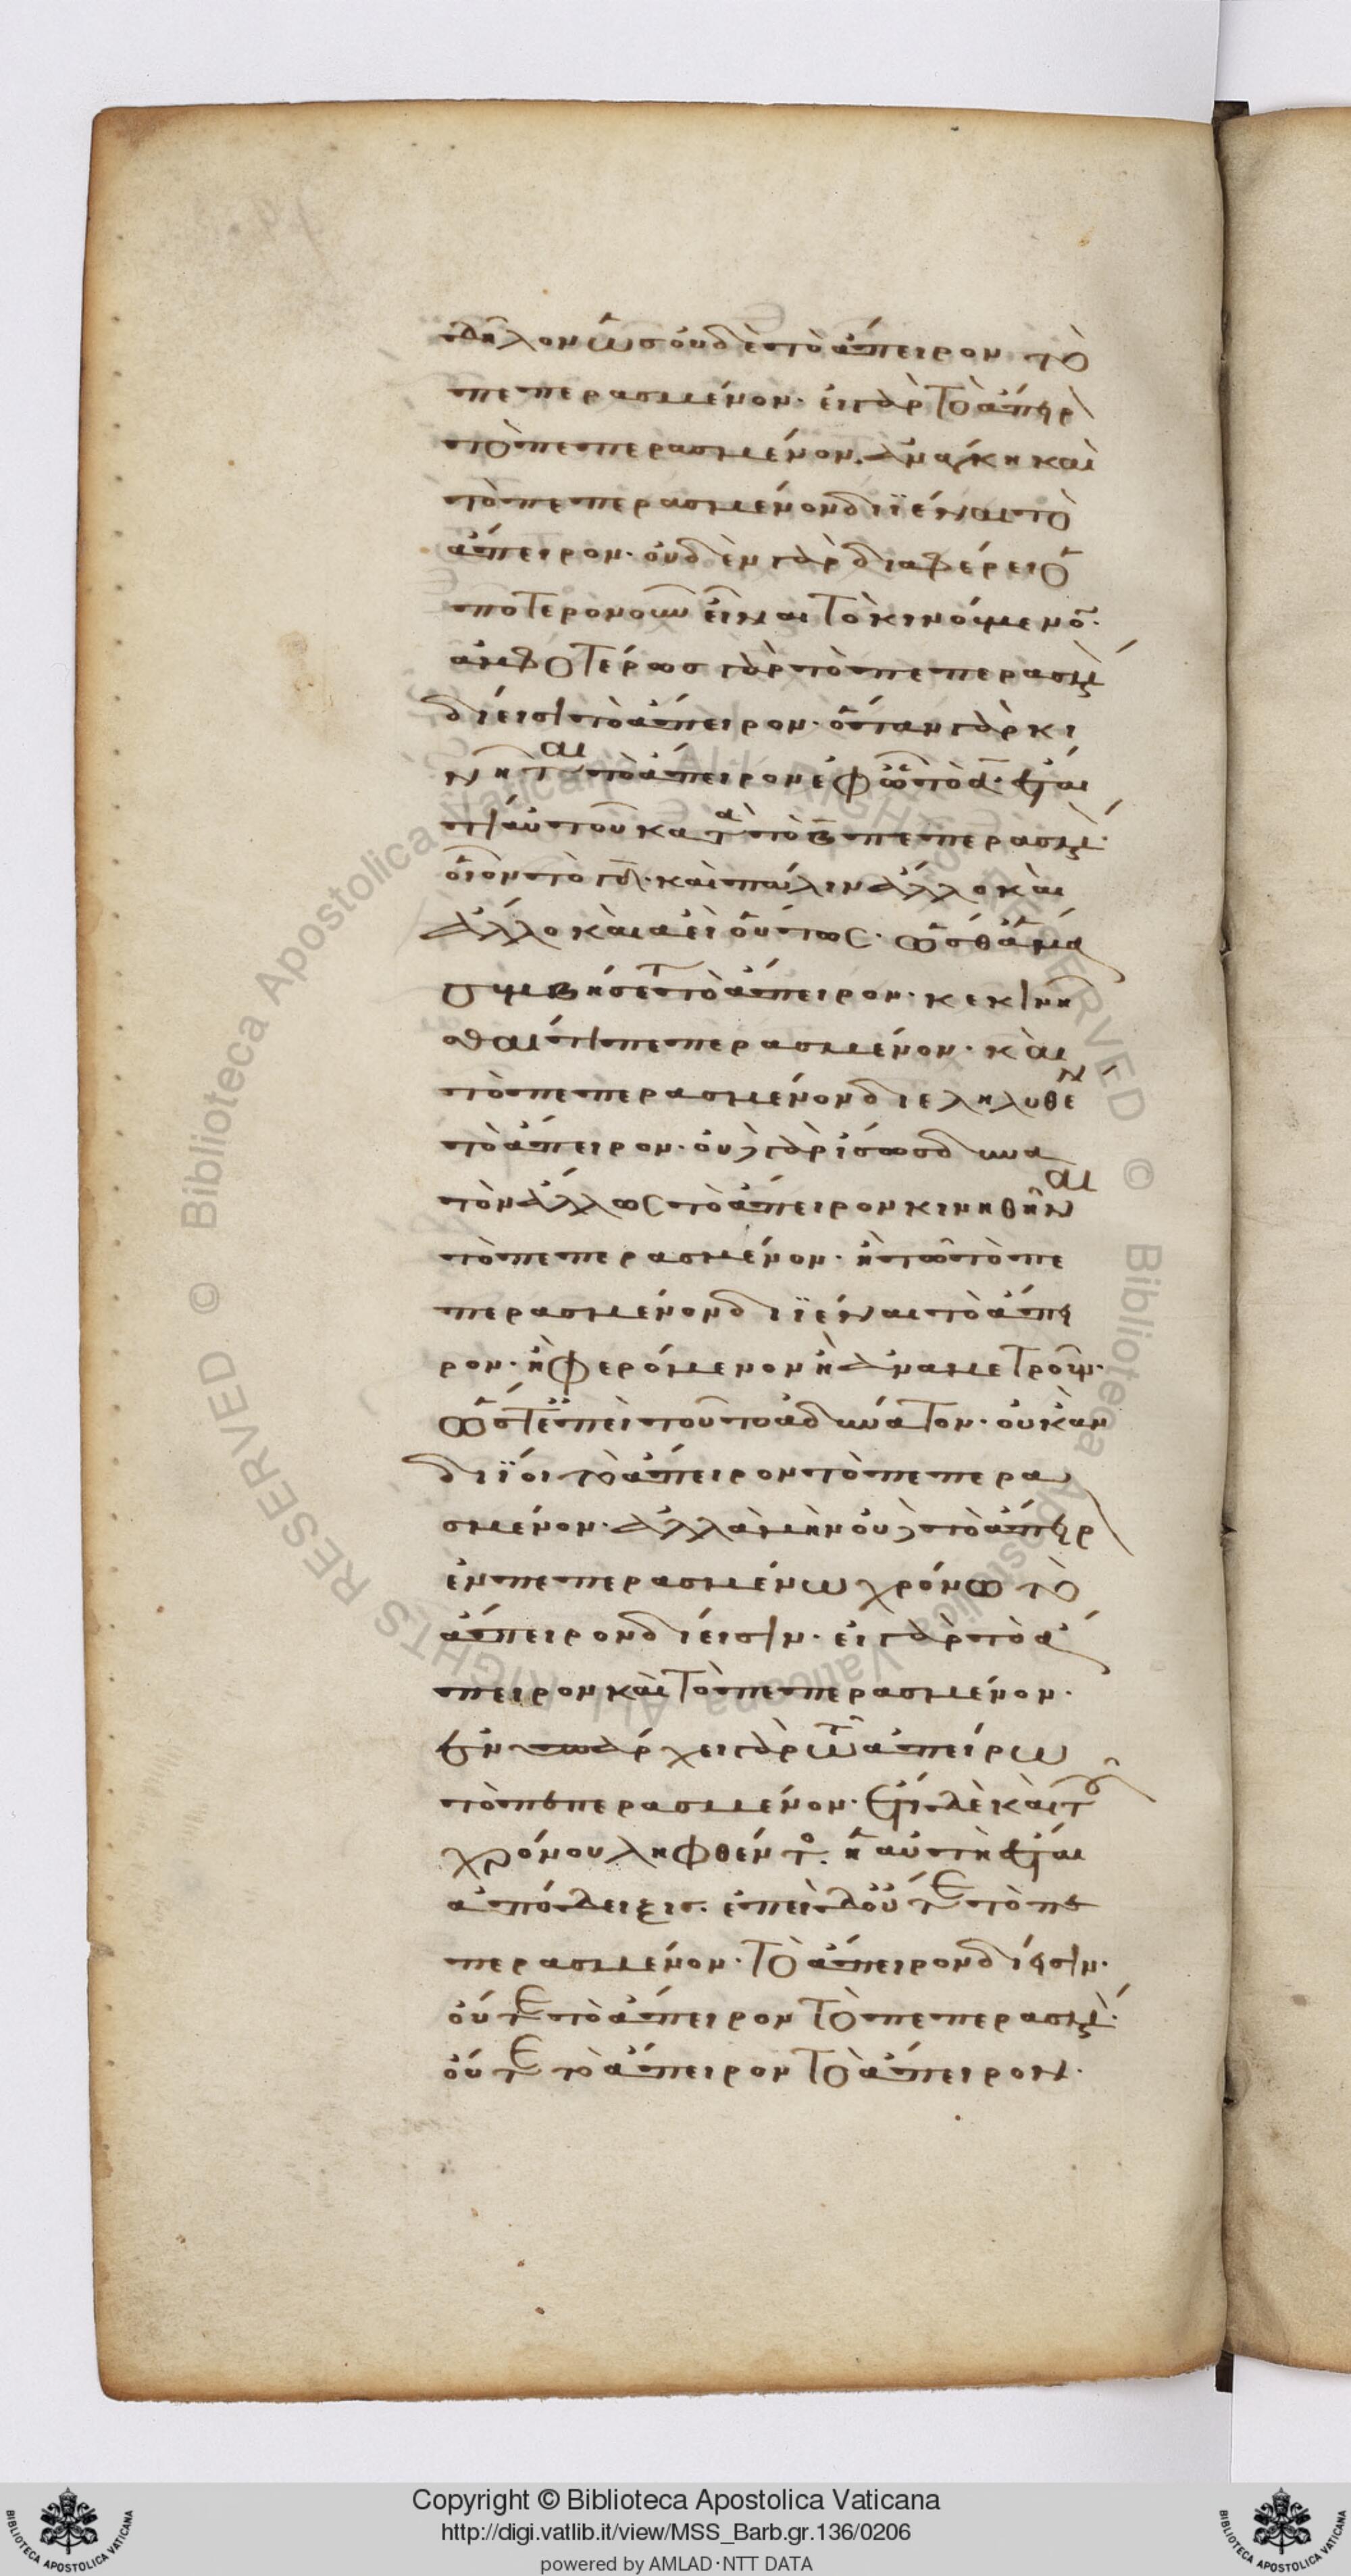 δῆλον ὡς οὐδὲ τὸ ἄπειρον τὸ
πεπερασμένον· εἰ γὰρ τὸ ἄπειρ
τὸ πεπερασμένον. ἀνάγκη καὶ
τὸ πεπερασμένον διϊέναι τὸ
ἄπειρον· οὐδὲν γὰρ διαφέρει ὁ
ποτερονοῦν εἶναι τὸ κινούμενο͂·
ἀμφοτέρως γὰρ τὸ πεπερασμέ
δίεισι τὸ ἄπειρον· ὅταν γὰρ κι
νῆται τὸ ἄπειρον ἐφ ὧ τὸ α· ἔσται
τι αὐτοῦ κατὰ τὸ β πεπερασμέ·
οἷον τὸ γδ· καὶ πάλιν ἄλλο καὶ
ἄλλο καὶ αἰεὶ οὕτως· ὥσθ ἅμα
συμβήσετ τὸ ἄπειρον· κεκινῆ
σθαι τὶ πεπερασμένον· καὶ
τὸ πεπερασμένον διεληλυθέν
τὸ ἄπειρον· οὐδὲ γὰρ ἴσως δυνα
τὸν ἄλλως τὸ ἄπειρον κινηθῆναι
τὸ πεπερασμένον· ἢ τῶ τὸ πε
περασμένον διϊέναι τὸ ἄπει
ρον· ἢ φερόμενον ἢ ἀναμετροῦν·
ὥστ ἐπεὶ τοῦτο ἀδύνατον· οὐκ ἂν
διΐοι τὸ ἄπειρον τὸ πεπερα
σμένον· ἀλλὰ μὴν οὐδὲ τὸ ἄπειρ
ἐν πεπερασμένω χρόνω τὸ
ἄπειρον δίεισιν· εἰ γὰρ τὸ ἄ
πειρον καὶ τὸ πεπερασμένον·
ἐνυπάρχει γὰρ τῶ ἀπείρω
τὸ πεπερασμένον· ἔτι δὲ καὶ τοῦ
χρόνου ληφθέντος· ἡ αὐτὴ ἔσται
ἀπόδειξις. ἐπεὶ δ οὔτε τὸ πε
περασμένον· τὸ ἄπειρον δίεισιν·
οὔτε τὸ ἄπειρον τὸ πεπερασμέ·
οὔτε τὸ ἄπειρον τὸ ἄπειρον·
Copyright © Biblioteca Apostolica Vaticana
http://digi.vatlib.it/view/MSS_Barb.gr.136/0206
powered by AMLAD·NTT DATA